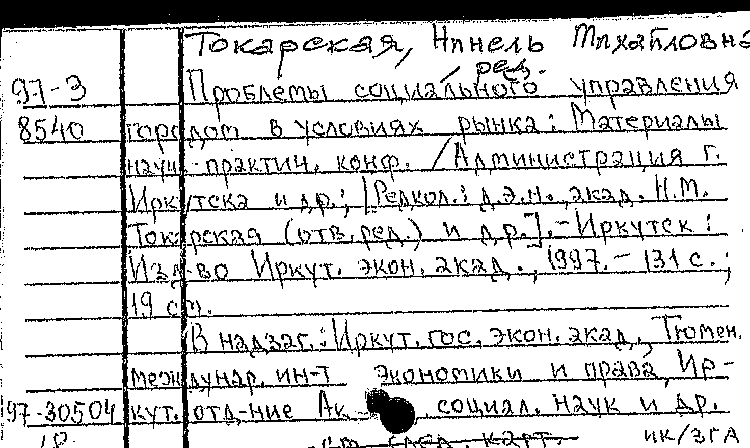 Токарская, Нинель Михайловна
ред.
97-3 Проблемы социального управления
8540 городом в условиях рынка: Материалы
науч.-практич. конф. / Администрация г.
Иркутска и др.; [Редкол.: д.э.н., акад. Н.М.
Токарская (отв. ред.) и др.]. - Иркутск:
Изд-во Иркут. экон. акад., 1997. - 131 с.;
19 см.
В надзаг.: Иркут. гос. экон. акад., Тюмен.
междунар. ин-т экономики и права, Ир-
97-30504 кут. отд-ние Ак. социал. наук и др.
см. след. карт. нк/зга